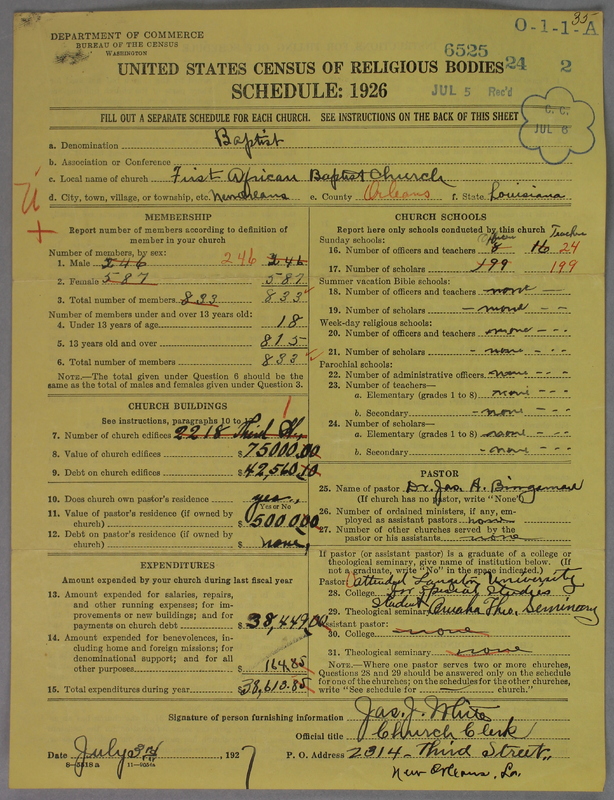 35
O-1-1-A
DEPARTMENT OF COMMERCE
BUREAU OF THE CENSUS
WASHINGTON
6525
UNITED STATES CENSUS OF RELIGIOUS BODIES 24 2
SCHEDULE: 1926
JUL 5 Rec'd
FILL OUT A SEPARATE SCHEDULE FOR EACH CHURCH. SEE INSTRUCTIONS ON THE BACK OF THIS SHEET
C. C.
JUL 6
a. Denomination Baptist
b. Association or Conference
c. Local name of church First African Baptist Church
d. City, town, village, or township, etc. New Orleans e. County Orleans f. State Louisiana
MEMBERSHIP
Report number of members according to definition of
member in your church
Number of members, by sex:
1. Male 246 246 246
2. Female 587 587
3. Total number of members 833 833
Number of members under and over 13 years old:
4. Under 13 years of age 18
5. 13 years old and over 815
6. Total number of members 833
NOTE.—The total given under Question 6 should be the
same as the total of males and females given under Question 3.
CHURCH BUILDINGS
See instructions, paragraphs 10 to 12
1
7. Number of church edifices 2218 Third St
8. Value of church edifices $75000.00
9. Debt on church edifices $42,560.10
10. Does church own pastor's residence yes
Yes or No
11. Value of pastor's residence (if owned by
church) $5000.00
12. Debt on pastor's residence (if owned by
church) $ none
EXPENDITURES
Amount expended by your church during last fiscal year
13. Amount expended for salaries, repairs,
and other running expenses; for im-
provements or new buildings; and for
payments on church debt $38,449.00
14. Amount expended for benevolences, in-
cluding home and foreign missions; for
denominational support; and for all
other purposes 164.85
15. Total expenditures during year $38,613.85
CHURCH SCHOOLS
Report here only schools conducted by this church
Sunday schools: Teachers
16. Number of officers and teachers 8 16 24
17. Number of scholars 199 199
Summer vacation Bible schools:
18. Number of officers and teachers none
19. Number of scholars none
Week-day religious schools:
20. Number of officers and teachers none
21. Number of scholars none
Parochial schools:
22. Number of administrative officers none
23. Number of teachers—
a. Elementary (grades 1 to 8) none
b. Secondary none
24. Number of scholars—
a. Elementary (grades 1 to 8) none
b. Secondary none
PASTOR
25. Name of pastor Dr. Jas. A. Bingaman
(If church has no pastor, write "None")
26. Number of ordained ministers, if any, em-
ployed as assistant pastors none
27. Number of other churches served by the
pastor or his assistants none
If pastor (or assistant pastor) is a graduate of a college or
theological seminary, give name of institution below. (If
not a graduate, write "No" in the space indicated.)
Pastor: attended Langston University
28. College for Special Studies
29. Theological seminary Student Omaha Theo. Seminary
Assistant pastor:
30. College none
31. Theological seminary none
NOTE.—Where one pastor serves two or more churches,
Questions 28 and 29 should be answered only on the schedule
for one of the churches; on the schedules for the other churches,
write "See schedule for church."
Signature of person furnishing information Jas. J. White
Official title Church Clerk
Date July 3rd, 1927 P. O. Address 2314 - Third Street,
New Orleans, La.
8—5518a